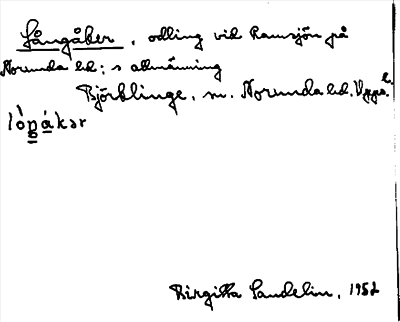 Långåker, odling vid Ramsjön på
Norunda hd:s allmänning
Björklinge, sn. Norunda hd. Upps. l.
lòŋákər
Birgitta Sandelin, 1952